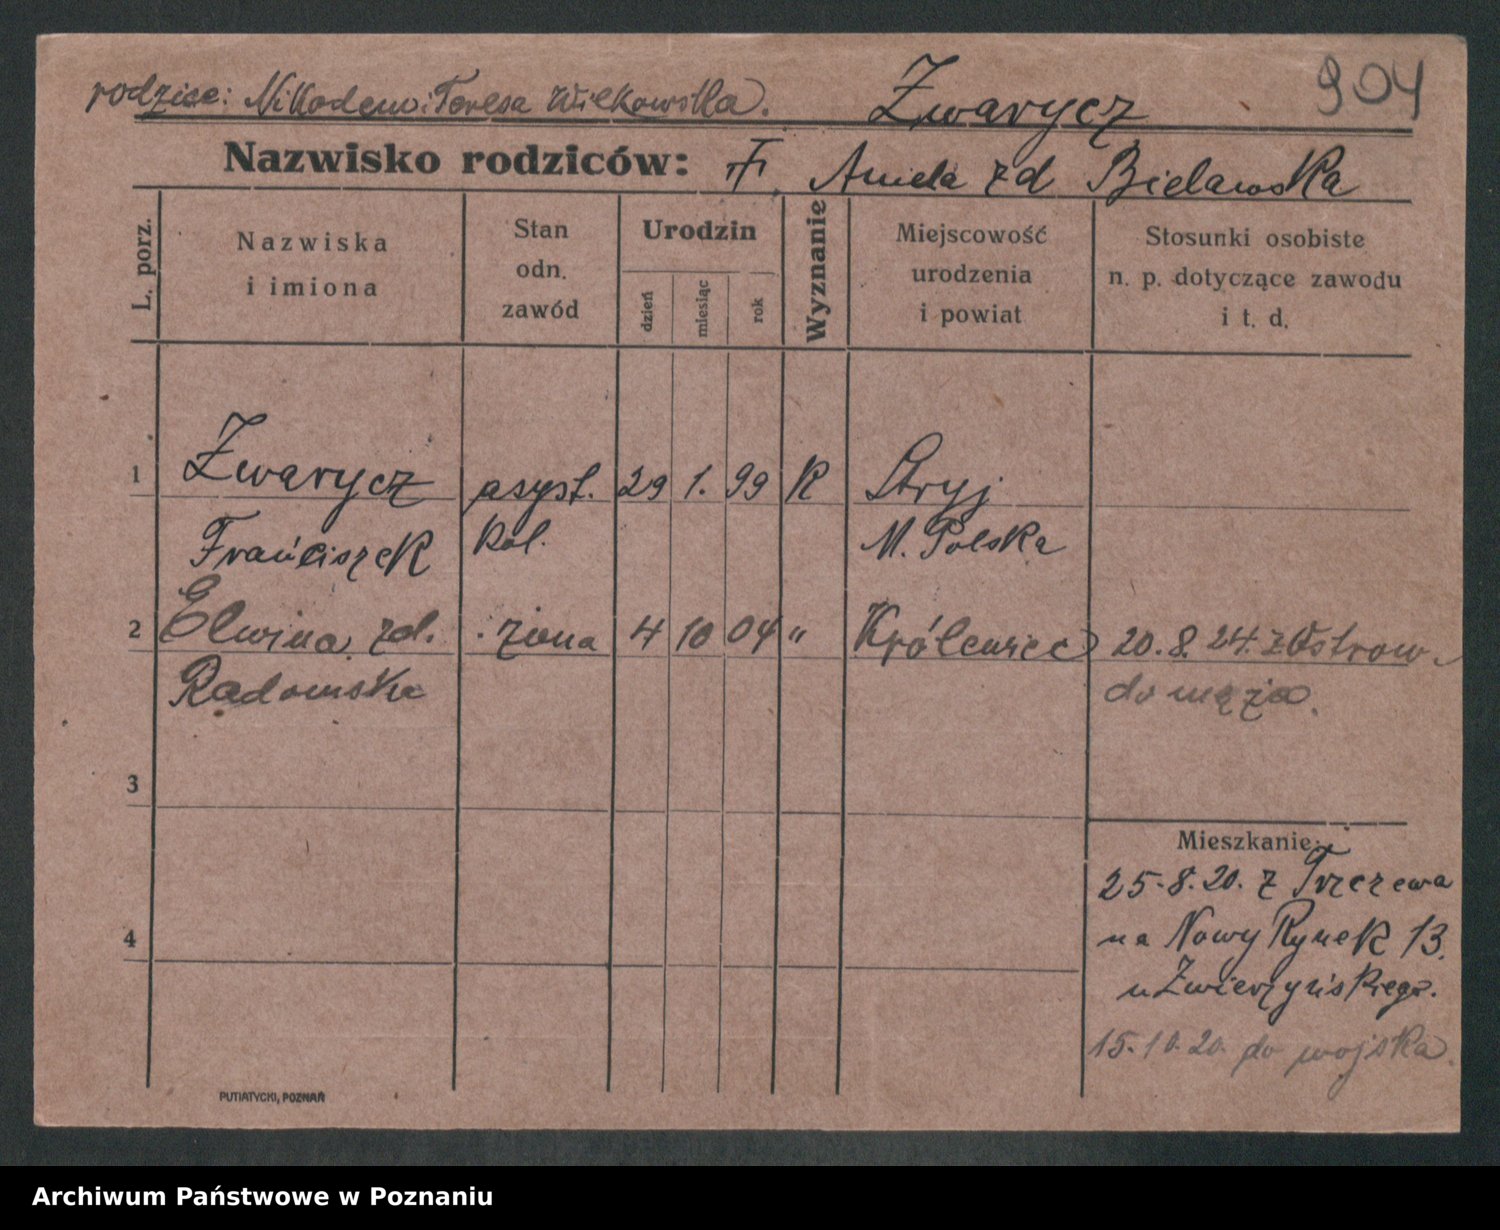 904
rodzice: Nikodem i Teresa Wilkowska. Zwarycz
Nazwisko rodziców: F. Aniela zd Bielawska
L. porz.
Nazwiska
i imiona
Stan
odn.
zawód
Urodzin
dzień
miesiąc
rok
Wyznanie
Miejscowość
urodzenia
i powiat
Stosunki osobiste
n. p. dotyczące zawodu
i t. d.
1 Zwarycz asyst. 29 1. 99 K Stryj
Franciszek kol. M. Polska
2 Elwina zd. żona 4 10 04 " Królewiec 20.8.24. z Ostrow.
Radomska do męża.
3
Mieszkanie:
25.8.20. z Trzczewa
4 na Nowy Rynek 13.
u Zwierzyńskiego.
15.10.20. do wojska.
PUTIATYCKI, POZNAŃ
Archiwum Państwowe w Poznaniu